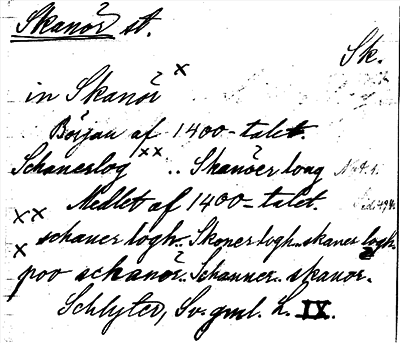 Skanör st.
Sk.
in Skanör x
Början af 1400-talet.
Schanerlog xx .. Skanöer loug
xx Medlet af 1400-talet.
x schauer logh. Skoner logh. skaner logh.
poo schanör. Schanner. skanor.
Schlyter, Sv. gml. L. IX.